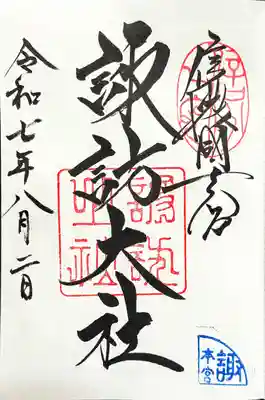 信濃國一之宮
諏訪大社
令和七年八月二日
諏訪
大社
諏
本宮